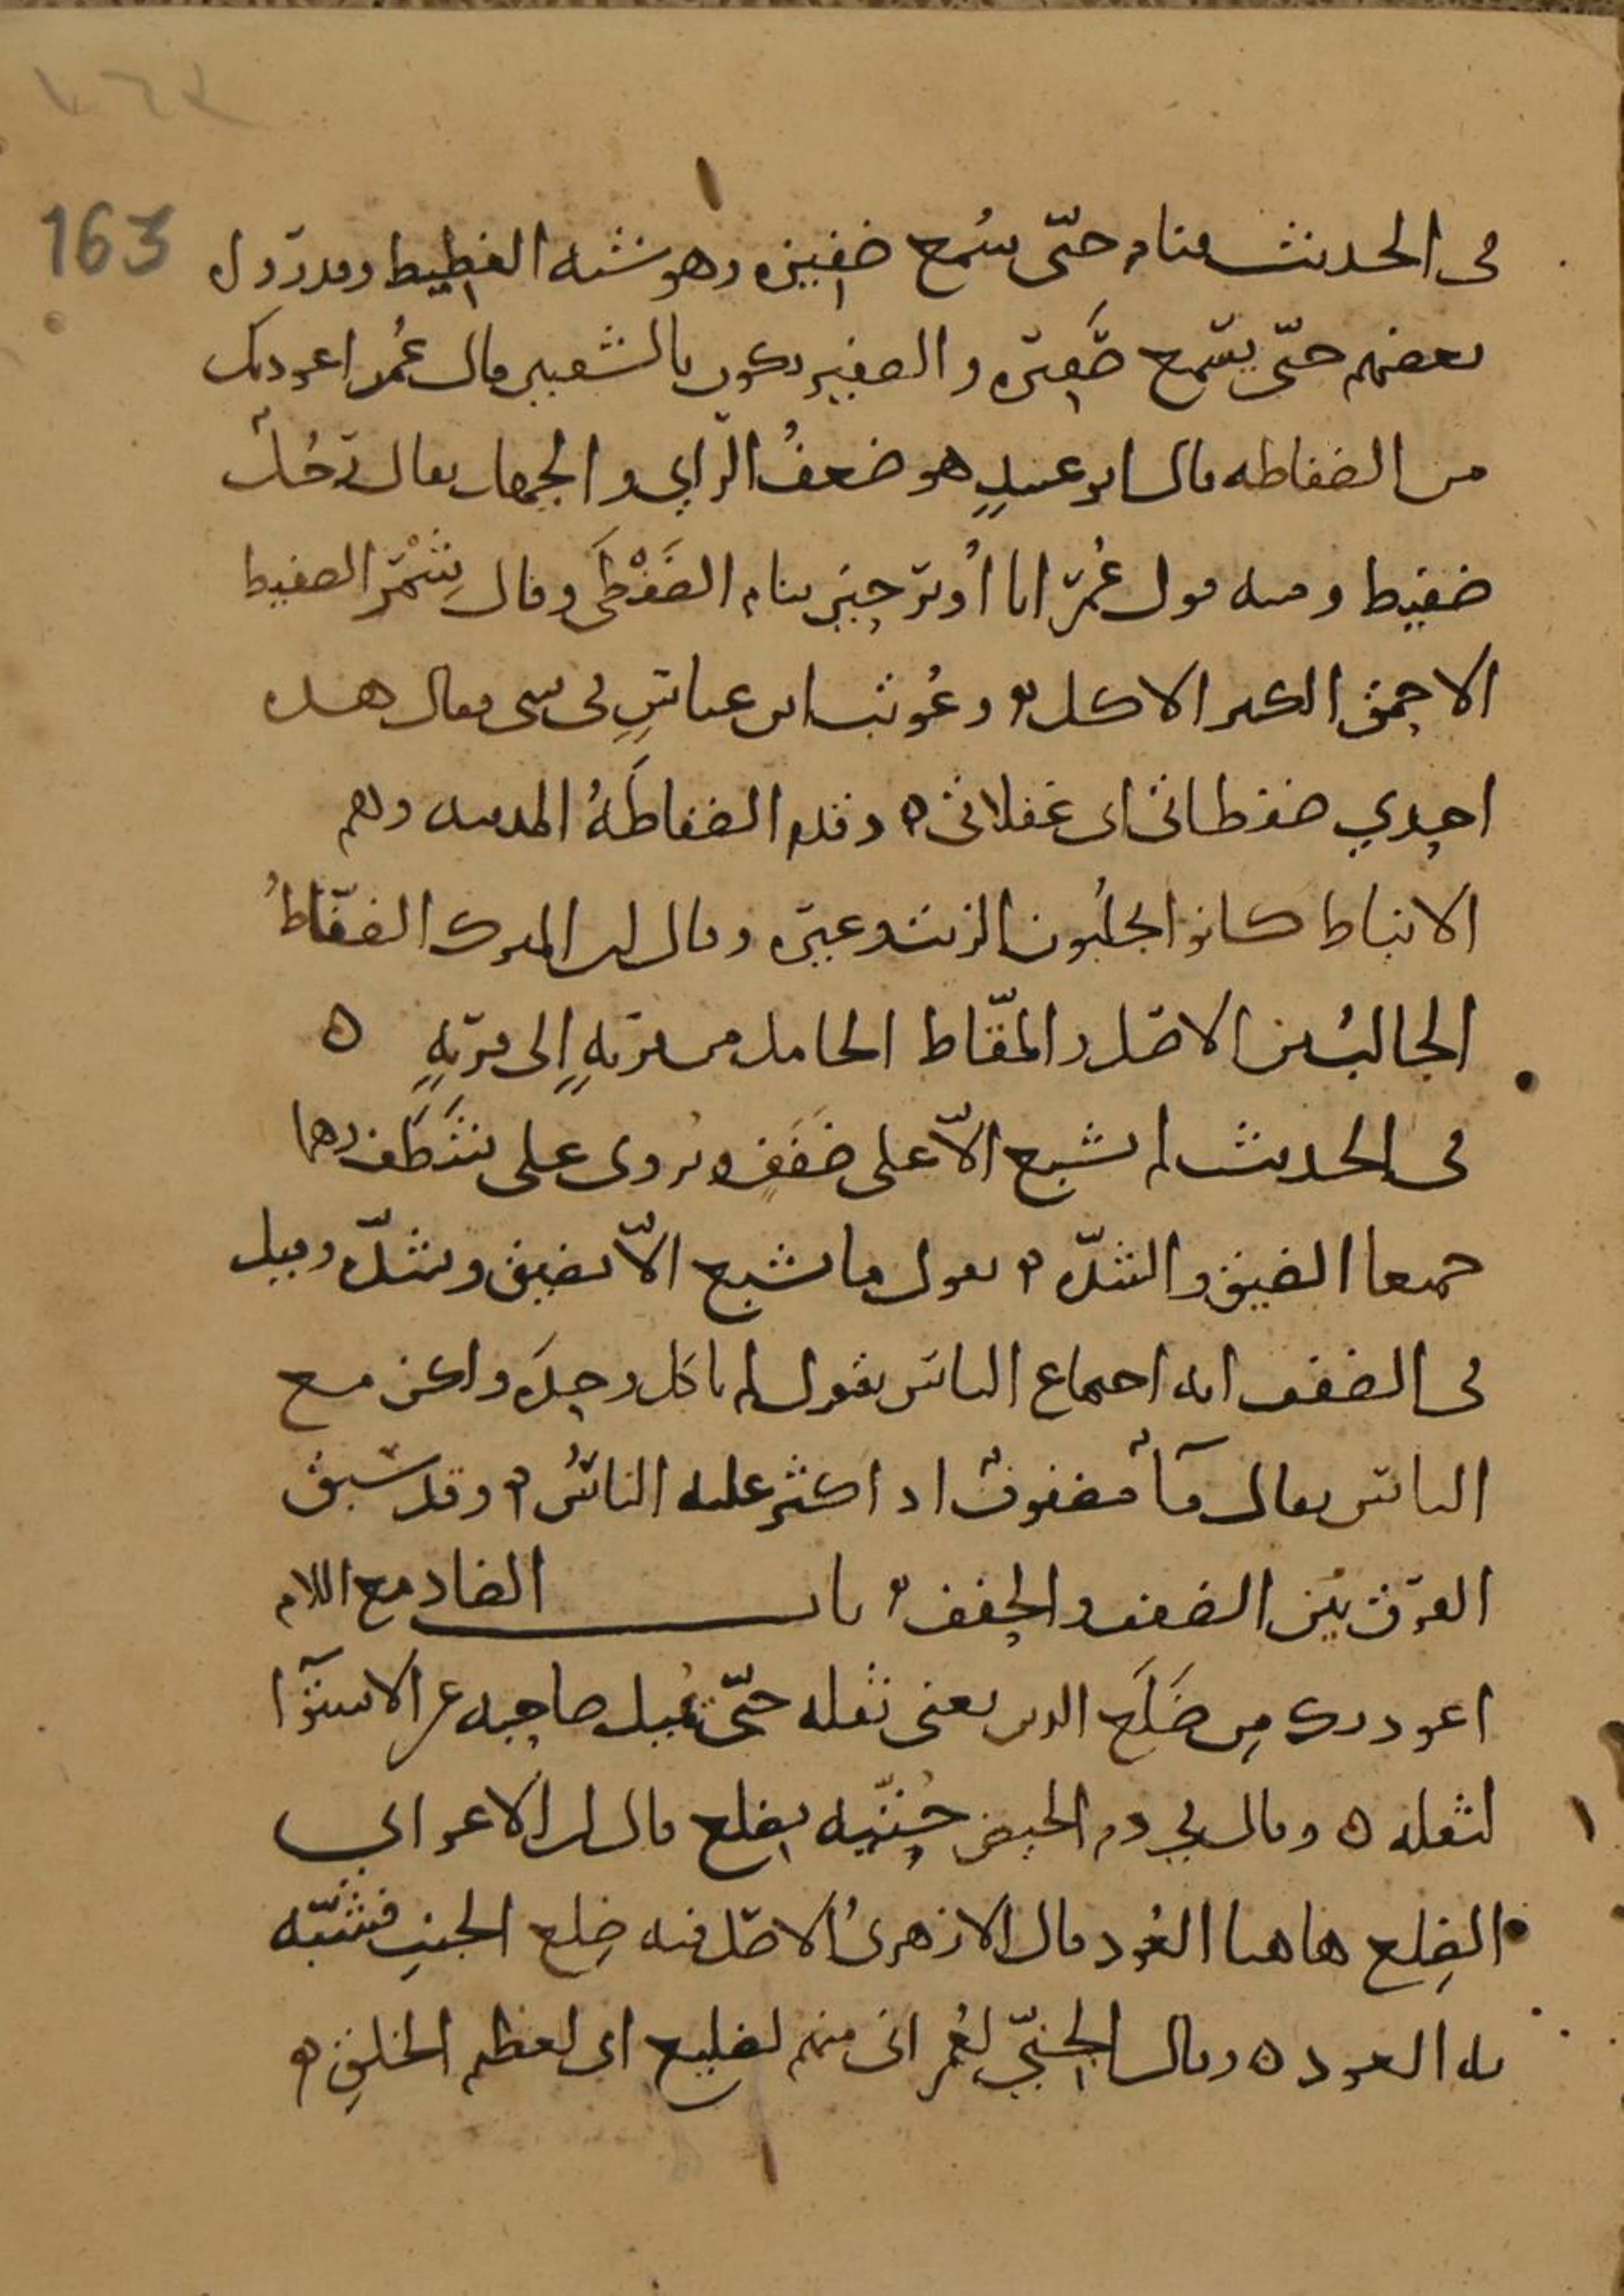 163
في الحديث فنام حتى سُمع ضفيزه وهو شبه الغطيط وقد رَوَاه
بعضهم حتى يسمع صَفيره والصفير يكون بالشفتين قال عُمر اعوذ بك
من الضفاطه قال ابو عبيدٍ هو ضعفُ الرّاي والجهل يقال رَجُلٌ
ضفيط ومنه قول عُمَر انا أُوتر حين ينام الضَفْطَى وقال شَمْر الضفيط
الاحمق الكثير الاكل وعُوتب ابن عباسٍ في شى فقال هذه
احدي ضفطاتى اى غفلاتى ه وقدم الضفاطَةُ المدينه وهم
الانباط كانوا يجلُبون الزيت وغيره وقال ابن المبرك الضفّاطُ
الجالبُ من الاصل والمقّاط الحامل من قريهٍ إلى قريهٍ ه
في الحديث لم يشبع الّا على ضَفَفٍ ويُروى على شَظَف وهما
جميعا الضيق والشدّه يقول ما يشبع الّا بضيق وشدّه وقيل
في الضفف انه اجتماع الناس يقول لم ياكل وحدَه ولكن مع
الناس يقال مآٌ مضفوفٌ اذا كثر عليه الناسُ وقد سبق
الفرق بين الضفف والحفف باب الضاد مع اللام
اعوذ بك مِن ضَلَع الدين يعنى ثقله حتّى يُميل صاحبه عن الاستوآ
لثقله ه وقال في دم الحيض حُتّيه بضلع قال ابن الاعرابي
الضِلع هاهنا العُود قال الازهرىُ الاصل فيه ضِلع الجنبِ فشبّه
به العود ه وقال الجنّي لعُمر انى منهم لضليع اى لعظيم الخلق